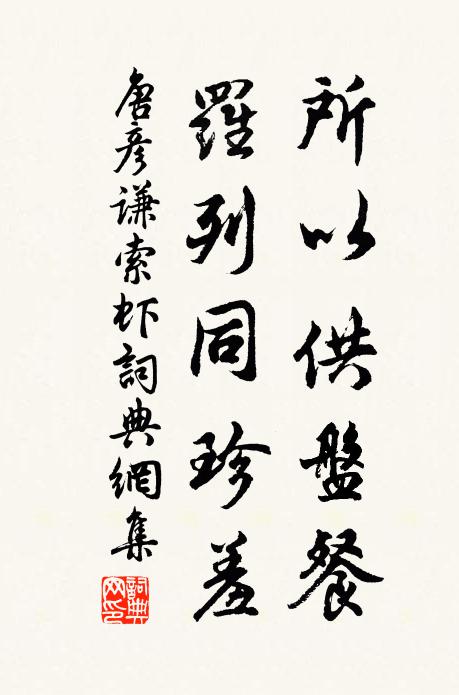 所以供盤餐
羅列同珍羞
唐彥謙索虾詞典網集
詞典网印